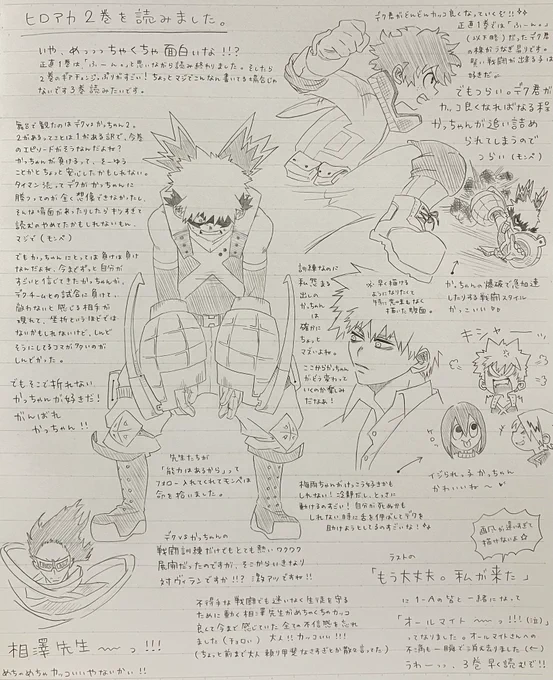 ヒロアカ2巻を読みました。
いや、めっっっちゃくちゃ面白いな!!?
正直1巻は「ふーん。」と思いながら読み終わりました。そしたら
2巻のギアチェンジっぷりがすごい!ちょっとマジでこんなん書いてる場合じゃ
ないです3巻読みたいです。
デク君がどんどんカッコ良くなっていくぞ!!
正直1巻では「ふーん。」
(以下略)だったデク君
の株がうなぎ昇りです。
賢い戦闘が出来る子は
好きだ〜
でもつらい。デク君が
カッコ良くなればなる程
かっちゃんが追い詰め
られてしまうので
つらい(モンペ)
舞台で観たのはデクvsかっちゃん2。
2があるってことは1がある訳で、今巻
のエピソードがそうなんだよね?
かっちゃんが負けるって、そーゆう
ことかとちょっと安心したかもしれない。
タイマン張ってデクがかっちゃんに
勝つってのが全く想像できなかったし、
そんな場面があったりしたら辛すぎて
読むのやめてたかもしれないもん、
マジで(モンペ)
でもかっちゃんにとっては負けは負け
なんだよね、今までずっと自分が
すごいと信じてきたかっちゃんが、
デクチームとの試合に負けて、
敵わないと感じる相手が
現れて、挫折というほどでは
ないかもしれないけど、しんど
そうにしてるコマが多いのが
しんどかった。
でもそこで折れない
かっちゃんが好きだ!
がんばれ
かっちゃん!!
訓練なのに
私怨まる
出しの
かっちゃん
は
確かに
ちょっと
マズいよね。
ここからかっちゃん
がどう変わって
いくのか楽しみ
だなあ!
※早く描ける
ようになりたくて
特に見せ場もなく
描いた横顔。
かっちゃんの爆破で急加速
したりする戦闘スタイル
かっこいい
キシャー
イジられっ子かっちゃん
かわいいね〜
先生たちが
「能力はあるから」って
フォロー入れてくれてモンペは
命を拾いました。
梅雨ちゃんがけっこう好きかも
しれない!冷静だし、とっさに
動けるのすごい!自分が死ぬかも
しれない時に舌を伸ばしてデクを
助けようとしてるのすごいな!
デクvsかっちゃんの
戦闘訓練だけでもとても熱いワクワク
展開だったのですが、そこからいきなり
対ヴィランですか!!?
不得手な戦闘でも迷いなく生徒を守る
ために動く相澤先生がめちゃくちゃカッコ
良くて今まで感じていた全ての不信感を忘れ
ました(チョロい) 大人!!カッコいい!!!
(ちょっと前まで大人頼り甲斐なさすぎとか散々言ってた)
相澤先生〜っ!!!
めちゃめちゃカッコいいやないかい!!
画風が違いすぎて
描けないよ
ラストの
「もう大丈夫。私が来た」
に1-Aの皆と一緒になって
「オールマイト〜っ!!!(泣)」
ってなりました。オールマイトさんへの
不満も一瞬で消え去りました(な…)
うわーっっ、3巻早く読むぞ!!